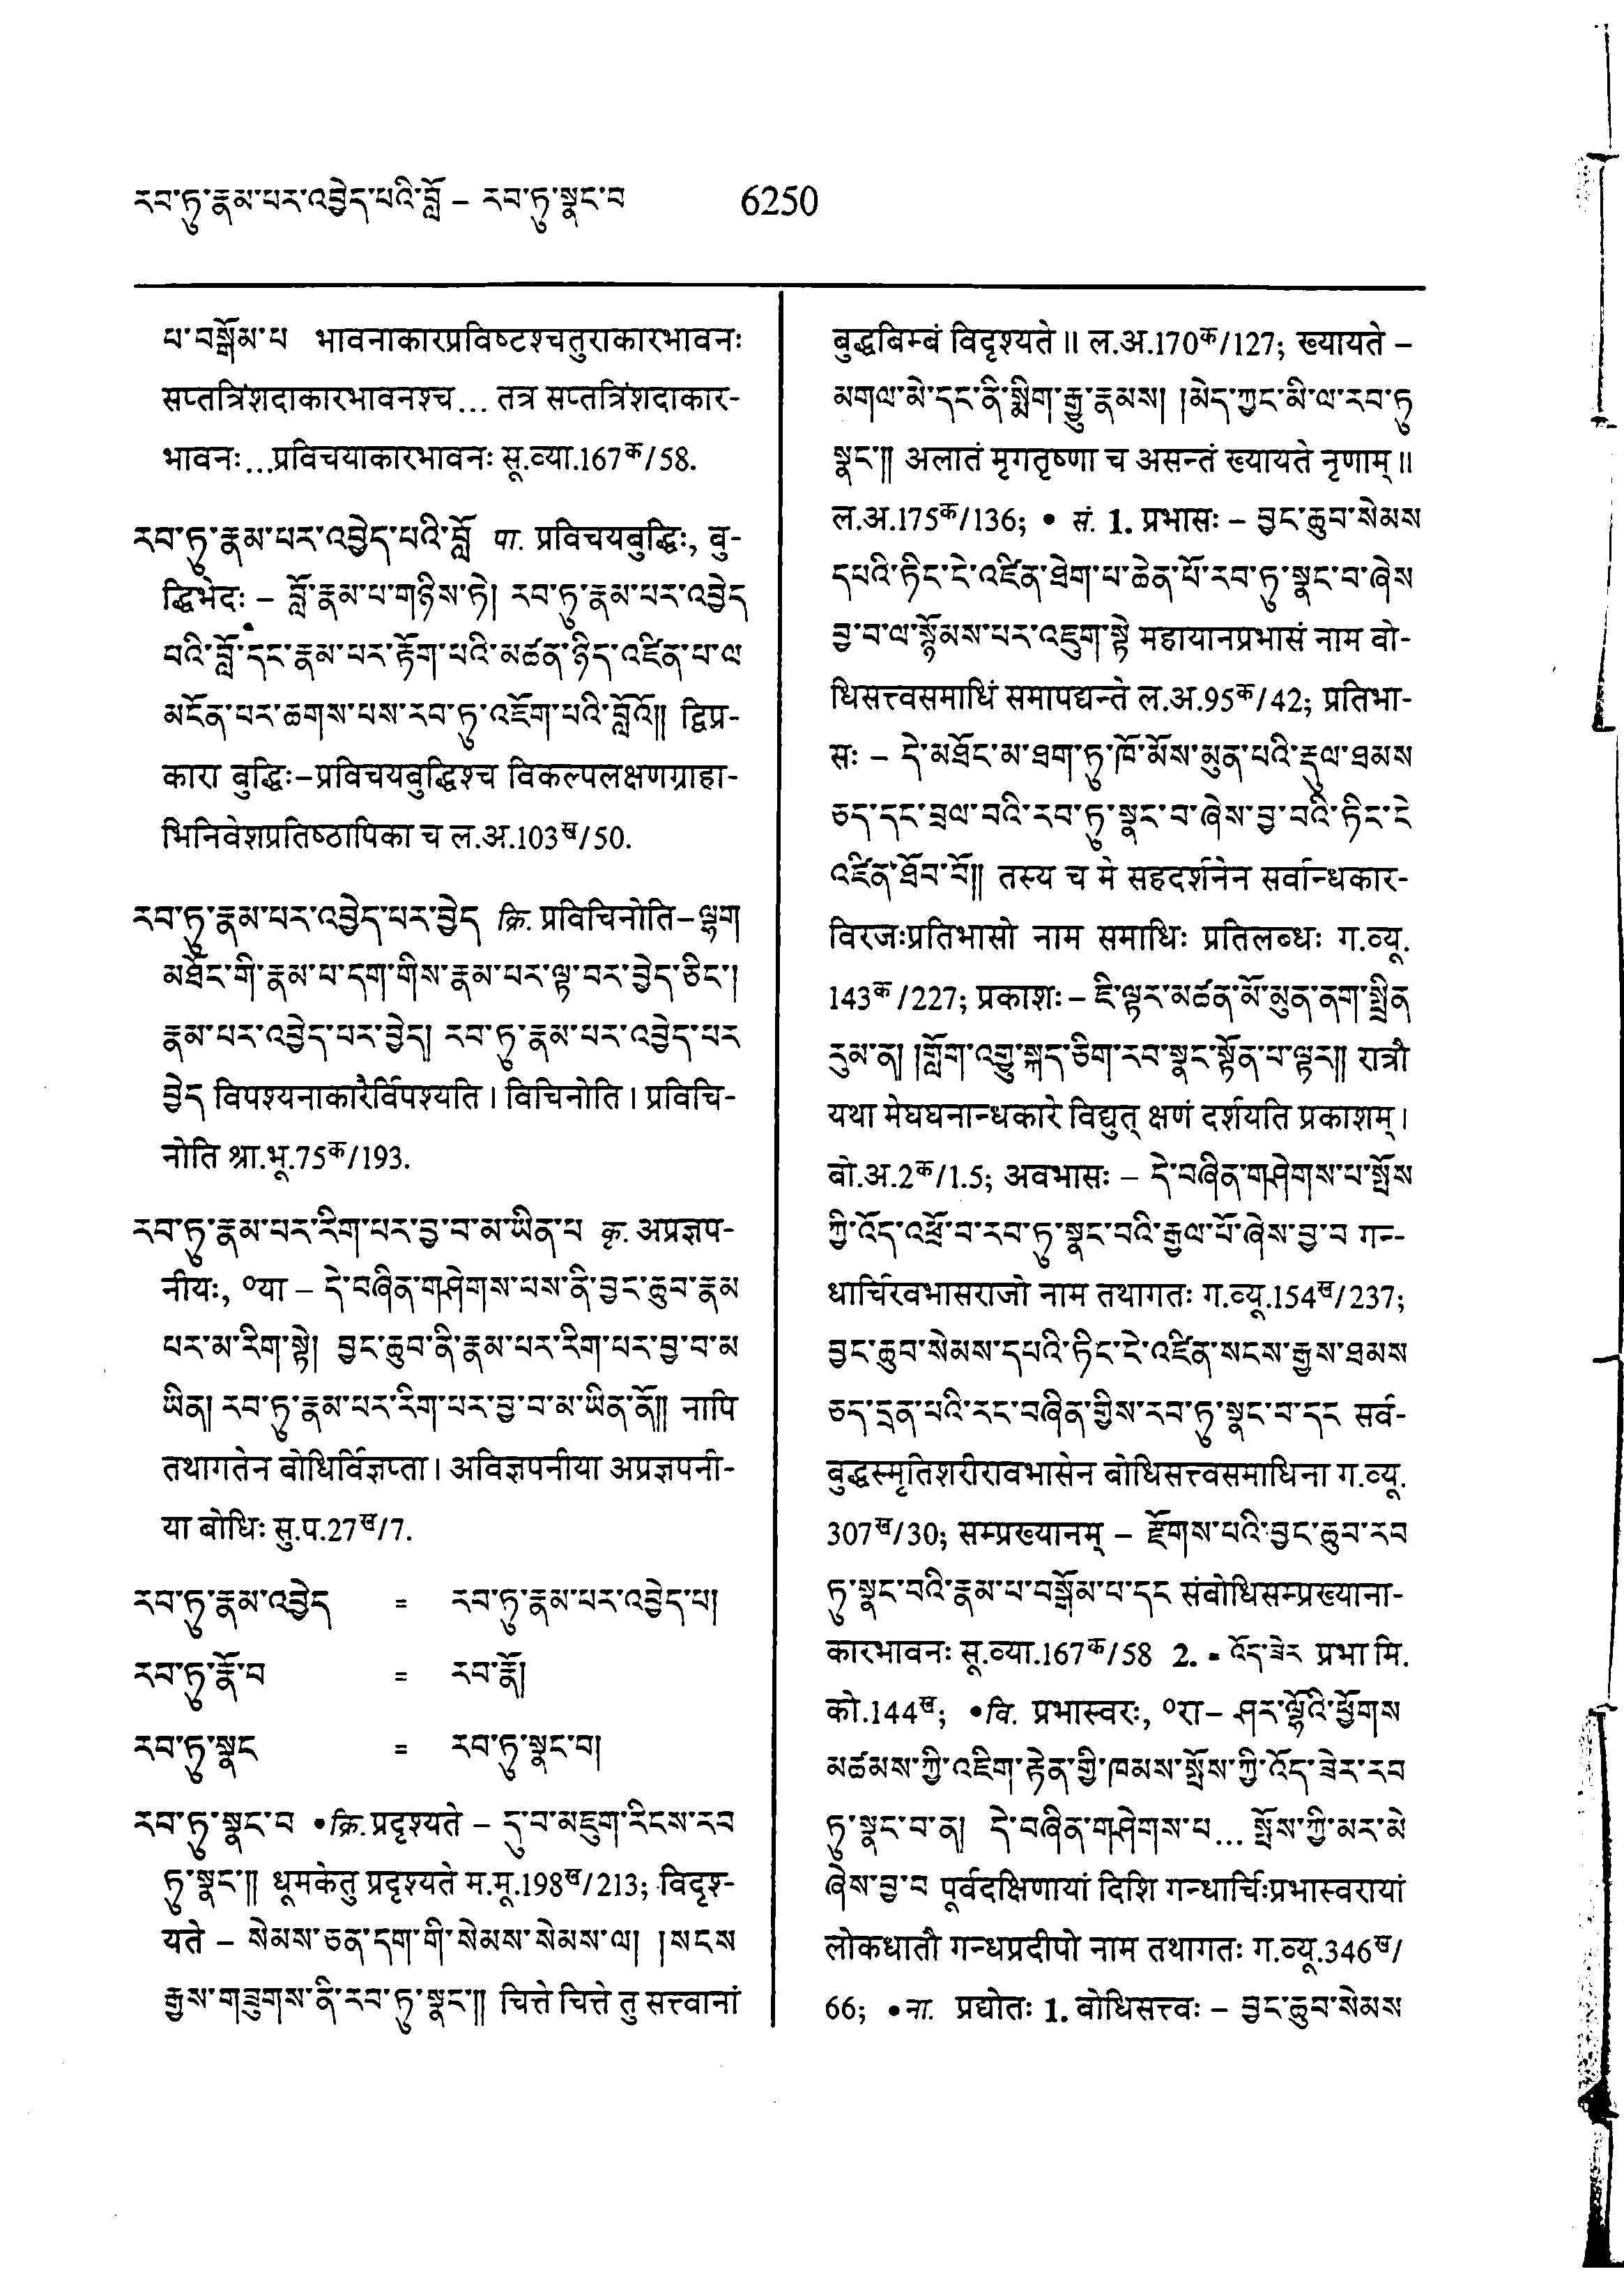 རབ་ཏུ་རྣམ་པར་འབྱེད་པའི་བློ – རབ་ཏུ་སྣང་བ 6250
པ་བསྒོམ་པ भावनाकारप्रविष्टश्चतुराकारभावनः
सप्तत्रिंशदाकारभावनश्च... तत्र सप्तत्रिंशदाकार-
भावनः...प्रविचयाकारभावनः सू.व्या.167क/58.
རབ་ཏུ་རྣམ་པར་འབྱེད་པའི་བློ पा. प्रविचयबुद्धिः, बु-
द्धिभेदः – བློ་རྣམ་པ་གཉིས་ཏེ། རབ་ཏུ་རྣམ་པར་འབྱེད
པའི་བློ་དང་རྣམ་པར་རྟོག་པའི་མཚན་ཉིད་འཛིན་པ་ལ
མངོན་པར་ཆགས་པས་རབ་ཏུ་འཇོག་པའི་བློའོ༎ द्विप्र-
कारा बुद्धिः–प्रविचयबुद्धिश्च विकल्पलक्षणग्राहा-
भिनिवेशप्रतिष्ठापिका च ल.अ.103ख/50.
རབ་ཏུ་རྣམ་པར་འབྱེད་པར་བྱེད क्रि. प्रविचिनोति–ལྷག
མཐོང་གི་རྣམ་པ་དག་གིས་རྣམ་པར་ལྟ་བར་བྱེད་ཅིང་།
རྣམ་པར་འབྱེད་པར་བྱེད། རབ་ཏུ་རྣམ་པར་འབྱེད་པར
བྱེད विपश्यनाकारैर्विपश्यति। विचिनोति। प्रविचि-
नोति श्रा.भू.75क/193.
རབ་ཏུ་རྣམ་པར་རིག་པར་བྱ་བ་མ་ཡིན་པ कृ. अप्रज्ञप-
नीयः, ०या – དེ་བཞིན་གཤེགས་པས་ནི་བྱང་ཆུབ་རྣམ
པར་མ་རིག་སྟེ། བྱང་ཆུབ་ནི་རྣམ་པར་རིག་པར་བྱ་བ་མ
ཡིན། རབ་ཏུ་རྣམ་པར་རིག་པར་བྱ་བ་མ་ཡིན་ནོ༎ नापि
तथागतेन बोधिर्विज्ञप्ता। अविज्ञपनीया अप्रज्ञपनी-
या बोधिः सु.प.27ख/7.
རབ་ཏུ་རྣམ་འབྱེད = རབ་ཏུ་རྣམ་པར་འབྱེད་པ།
རབ་ཏུ་རྣོ་བ = རབ་རྣོ།
རབ་ཏུ་སྣང = རབ་ཏུ་སྣང་བ།
རབ་ཏུ་སྣང་བ •क्रि. प्रदृश्यते – དུ་བ་མཇུག་རིངས་རབ
ཏུ་སྣང་༎ धूमकेतु प्रदृश्यते म.मू.198ख/213; विदृश्-
यते – སེམས་ཅན་དག་གི་སེམས་སེམས་ལ། །སངས
རྒྱས་གཟུགས་ནི་རབ་ཏུ་སྣང་༎ चित्ते चित्ते तु सत्त्वानां
बुद्धबिम्बं विदृश्यते॥ ल.अ.170क/127; ख्यायते –
མགལ་མེ་དང་ནི་སྨིག་རྒྱུ་རྣམས། །མེད་ཀྱང་མི་ལ་རབ་ཏུ
སྣང་༎ अलातं मृगतृष्णा च असन्तं ख्यायते नृणाम्॥
ल.अ.175क/136; • सं. 1. प्रभासः – བྱང་ཆུབ་སེམས
དཔའི་ཏིང་ངེ་འཛིན་ཐེག་པ་ཆེན་པོ་རབ་ཏུ་སྣང་བ་ཞེས
བྱ་བ་ལ་སྙོམས་པར་འཇུག་སྟེ महायानप्रभासं नाम बो-
धिसत्त्वसमाधिं समापद्यन्ते ल.अ.95क/42; प्रतिभा-
सः – དེ་མཐོང་མ་ཐག་ཏུ་ཁོ་མོས་མུན་པའི་རྡུལ་ཐམས
ཅད་དང་བྲལ་བའི་རབ་ཏུ་སྣང་བ་ཞེས་བྱ་བའི་ཏིང་ངེ
འཛིན་ཐོབ་བོ༎ तस्य च मे सहदर्शनेन सर्वान्धकार-
विरजःप्रतिभासो नाम समाधिः प्रतिलब्धः ग.व्यू.
143क/227; प्रकाशः – ཇི་ལྟར་མཚན་མོ་མུན་ནག་སྤྲིན
རུམ་ན། །གློག་འགྱུ་སྐད་ཅིག་རབ་སྣང་སྟོན་པ་ལྟར༎ रात्रौ
यथा मेघघनान्धकारे विद्युत् क्षणं दर्शयति प्रकाशम्।
बो.अ.2क/1.5; अवभासः – དེ་བཞིན་གཤེགས་པ་སྤོས
ཀྱི་འོད་འཕྲོ་བ་རབ་ཏུ་སྣང་བའི་རྒྱལ་པོ་ཞེས་བྱ་བ गन्-
धार्चिरवभासराजो नाम तथागतः ग.व्यू.154ख/237;
བྱང་ཆུབ་སེམས་དཔའི་ཏིང་ངེ་འཛིན་སངས་རྒྱས་ཐམས
ཅད་དྲན་པའི་རང་བཞིན་གྱིས་རབ་ཏུ་སྣང་བ་དང सर्व-
बुद्धस्मृतिशरीरावभासेन बोधिसत्त्वसमाधिना ग.व्यू.
307ख/30; सम्प्रख्यानम् – རྫོགས་པའི་བྱང་ཆུབ་རབ
ཏུ་སྣང་བའི་རྣམ་པ་བསྒོམ་པ་དང संबोधिसम्प्रख्याना-
कारभावनः सू.व्या.167क/58 2. ॰ འོད་ཟེར प्रभा मि.
को.144ख; •वि. प्रभास्वरः, ०रा– ཤར་ལྷོའི་ཕྱོགས
མཚམས་ཀྱི་འཇིག་རྟེན་གྱི་ཁམས་སྤོས་ཀྱི་འོད་ཟེར་རབ
ཏུ་སྣང་བ་ན། དེ་བཞིན་གཤེགས་པ... སྤོས་ཀྱི་མར་མེ
ཞེས་བྱ་བ पूर्वदक्षिणायां दिशि गन्धार्चिःप्रभास्वरायां
लोकधातौ गन्धप्रदीपो नाम तथागतः ग.व्यू.346ख/
66; •ना. प्रद्योतः 1. बोधिसत्त्वः – བྱང་ཆུབ་སེམས